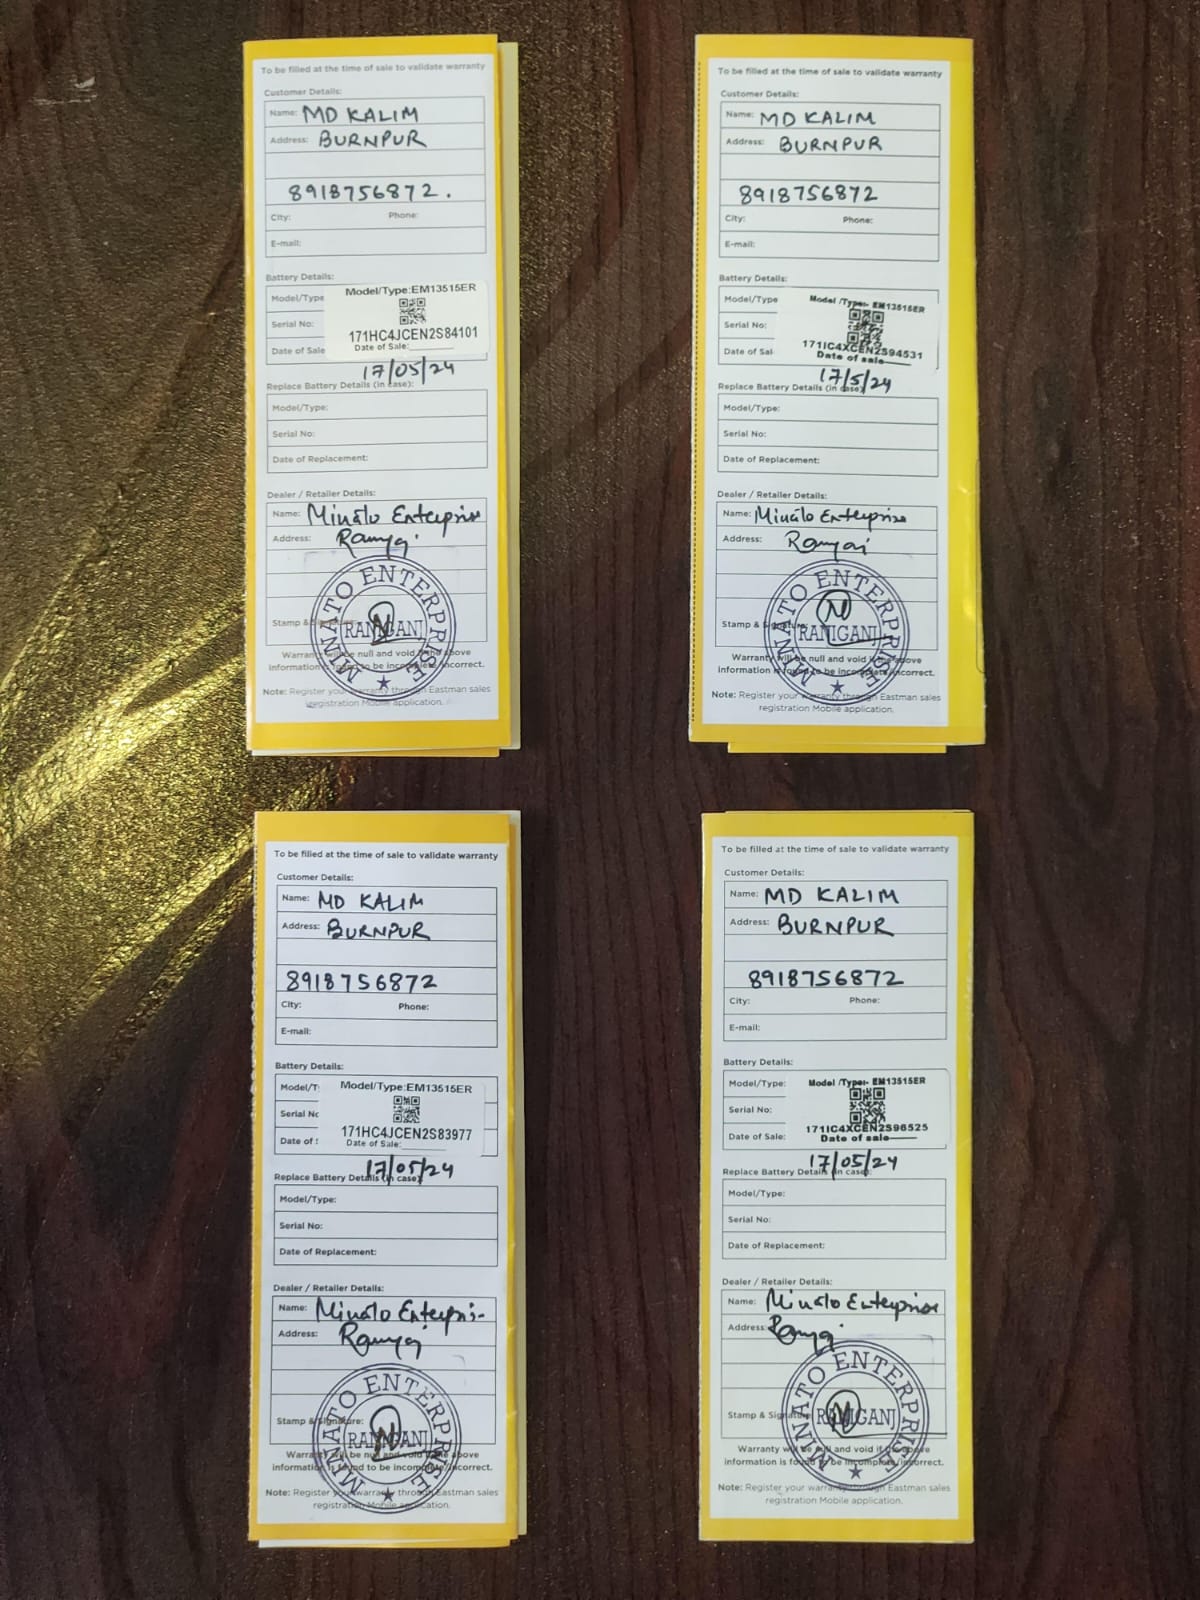 To be filled at the time of sale to validate warranty
Customer Details:
Name: MD KALIM
Address: BURNPUR
8918756872.
City: Phone:
E-mail:
Battery Details:
Model/Type Model/Type:EM13515ER
Serial No: 171HC4JCEN2S84101
Date of Sale Date of Sale:
17/05/24
Replace Battery Details (in case):
Model/Type:
Serial No:
Date of Replacement:
Dealer / Retailer Details:
Name: Minato Enterprise
Address:
MINATO ENTERPRISE
RANIGANJ
Stamp & Signature:
Warranty will be null and void if the above
information is found to be incomplete/incorrect.
Note: Register your warranty through Eastman sales
registration Mobile application.
To be filled at the time of sale to validate warranty
Customer Details:
Name: MD KALIM
Address: BURNPUR
8918756872
City: Phone:
E-mail:
Battery Details:
Model/Type Model /Type:- EM13515ER
Serial No: 171IC4XCEN2S94531
Date of Sal Date of sale
17/5/24
Replace Battery Details (in case)
Model/Type:
Serial No:
Date of Replacement:
Dealer / Retailer Details:
Name: Minato Enterprise
Address:
MINATO ENTERPRISE
RANIGANJ
Stamp & Signature:
Warranty will be null and void if the above
information is found to be incomplete/incorrect.
Note: Register your warranty through Eastman sales
registration Mobile application.
To be filled at the time of sale to validate warranty
Customer Details:
Name: MD KALIM
Address: BURNPUR
8918756872
City: Phone:
E-mail:
Battery Details:
Model/T Model/Type:EM13515ER
Serial No 171HC4JCEN2S83977
Date of S Date of Sale:
17/05/24
Replace Battery Details (in case)
Model/Type:
Serial No:
Date of Replacement:
Dealer / Retailer Details:
Name: Minato
Address:
MINATO ENTERPRISE
RANIGANJ
Stamp & Signature:
Warranty will be null and void if the above
information is found to be incomplete/incorrect.
Note: Register your warranty through Eastman sales
registration Mobile application.
To be filled at the time of sale to validate warranty
Customer Details:
Name: MD KALIM
Address: BURNPUR
8918756872
City: Phone:
E-mail:
Battery Details:
Model/Type: Model /Type:- EM13515ER
Serial No: 171IC4XCEN2S96525
Date of Sale: Date of sale
17/05/24
Replace Battery Details (in case)
Model/Type:
Serial No:
Date of Replacement:
Dealer / Retailer Details:
Name: Minato Enterprise
Address:
MINATO ENTERPRISE
RANIGANJ
Stamp & Signature
Warranty will be null and void if the above
information is found to be incomplete/incorrect.
Note: Register your warranty through Eastman sales
registration Mobile application.